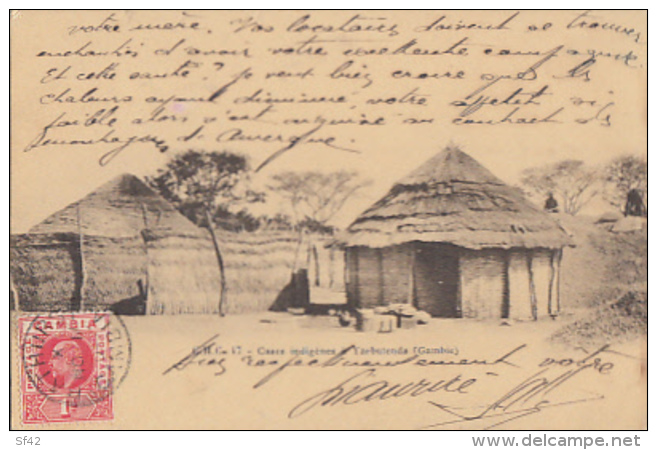 votre mère. Vos locataires doivent se trouver
enchantés d'avoir votre excellente compagnie.
Et cette santé? Je veux bien croire que les
chaleurs ayant diminué, votre appétit si
faible alors s'est augmenté au contact des
montagnes d'Auvergne.
C.H.C. 17 - Cases indigènes à Yarbutenda (Gambia)
Bien respectueusement vôtre
Maurice
GAMBIA
POSTAGE
Sf42
www.delcampe.net